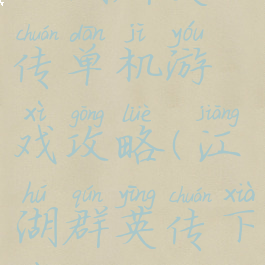 chuán dān jī yóu
传单机游
xì gōng lüè jiāng
戏攻略(江
hú qún yīng chuán xià
湖群英传下